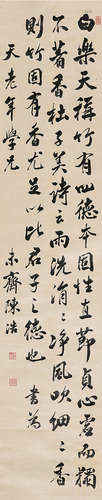 白樂天稱竹有四德本固性直節貞心虛而獨
不著香杜子美詩云雨洗涓涓淨風吹細細香
則竹固有香尤足以比君子之德也 書為
天老年學兄
未齋陳浩